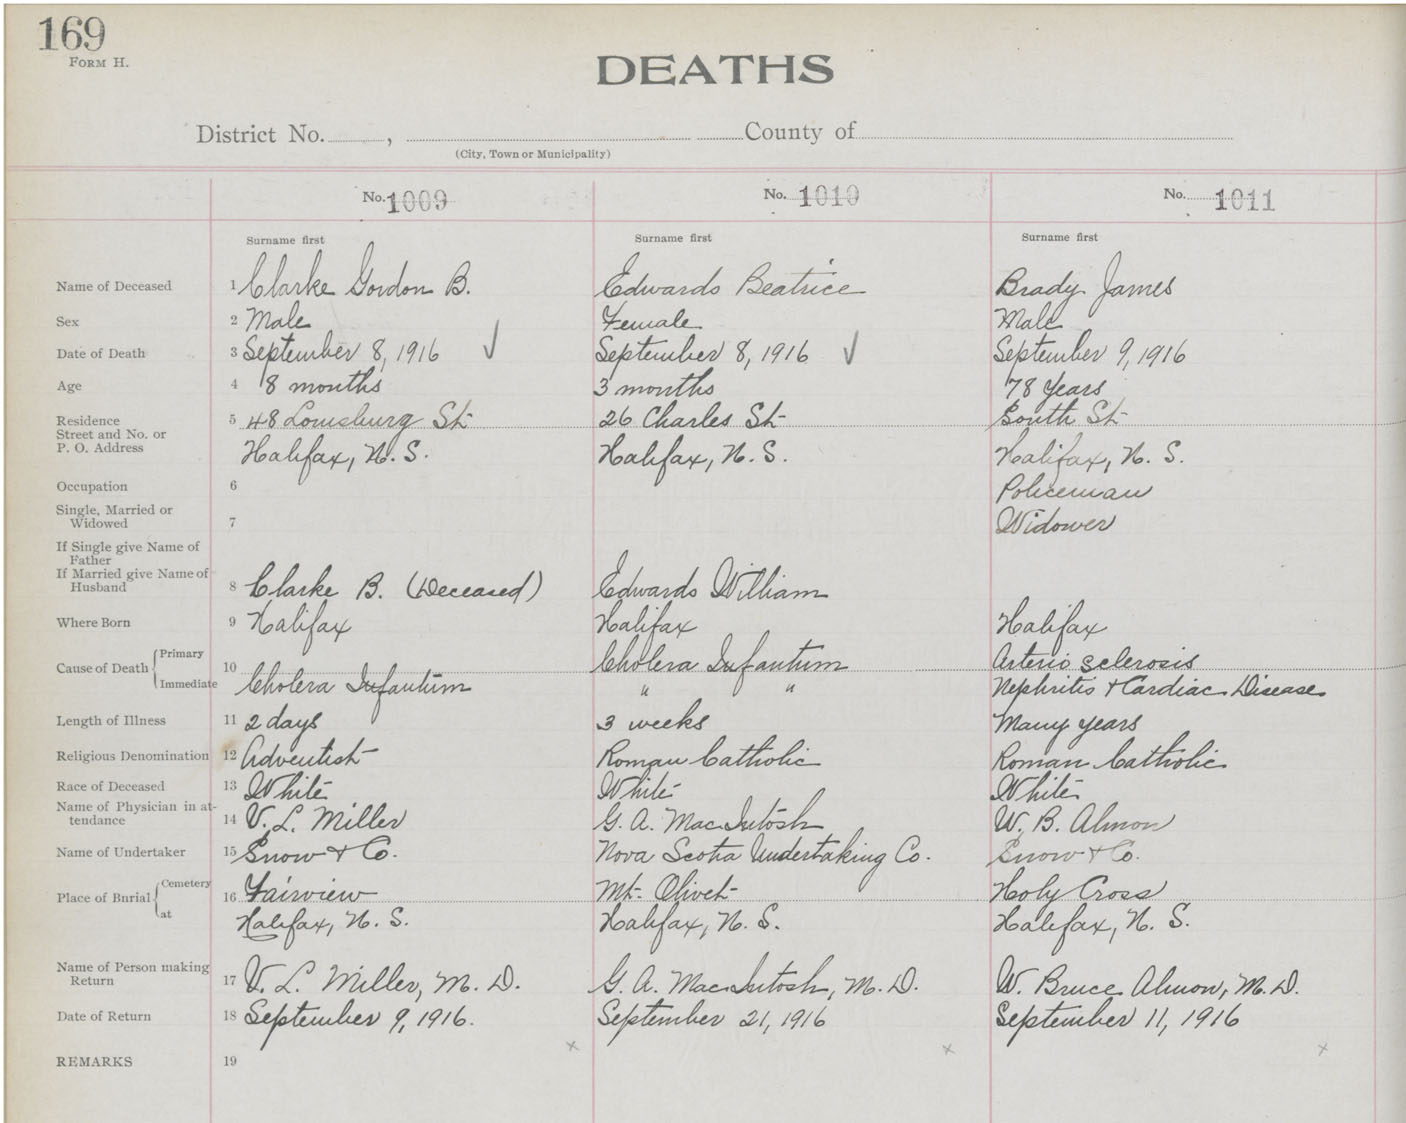 169
FORM H.
DEATHS
District No. , County of
(City, Town or Municipality)
No. 1009 No. 1010 No. 1011
Surname first Surname first Surname first
Name of Deceased 1 Clarke Gordon B. Edwards Beatrice Brady James
Sex 2 Male Female Male
Date of Death 3 September 8, 1916 ✓ September 8, 1916 ✓ September 9, 1916
Age 4 8 months 3 months 78 Years
Residence 5 48 Louisburg St 26 Charles St South St
Street and No. or
P. O. Address Halifax, N. S. Halifax, N. S. Halifax, N. S.
Occupation 6 Policeman
Single, Married or
Widowed 7 Widower
If Single give Name of
Father
If Married give Name of
Husband 8 Clarke B. (Deceased) Edwards William
Where Born 9 Halifax Halifax Halifax
Primary Cholera Infantum Arterio sclerosis
Cause of Death 10
Immediate Cholera Infantum " " Nephritis + Cardiac Disease
Length of Illness 11 2 days 3 weeks Many years
Religious Denomination 12 Adventist Roman Catholic Roman Catholic
Race of Deceased 13 White White White
Name of Physician in at-
tendance 14 V. L. Miller G. A. MacIntosh W. B. Almon
Name of Undertaker 15 Snow + Co. Nova Scotia Undertaking Co. Snow + Co.
Cemetery
Place of Burial 16 Fairview Mt. Olivet Holy Cross
at Halifax, N. S. Halifax, N. S. Halifax, N. S.
Name of Person making
Return 17 V. L. Miller, M. D. G. A. MacIntosh, M. D. W. Bruce Almon, M. D.
Date of Return 18 September 9, 1916. September 21, 1916 September 11, 1916
x x x
REMARKS 19